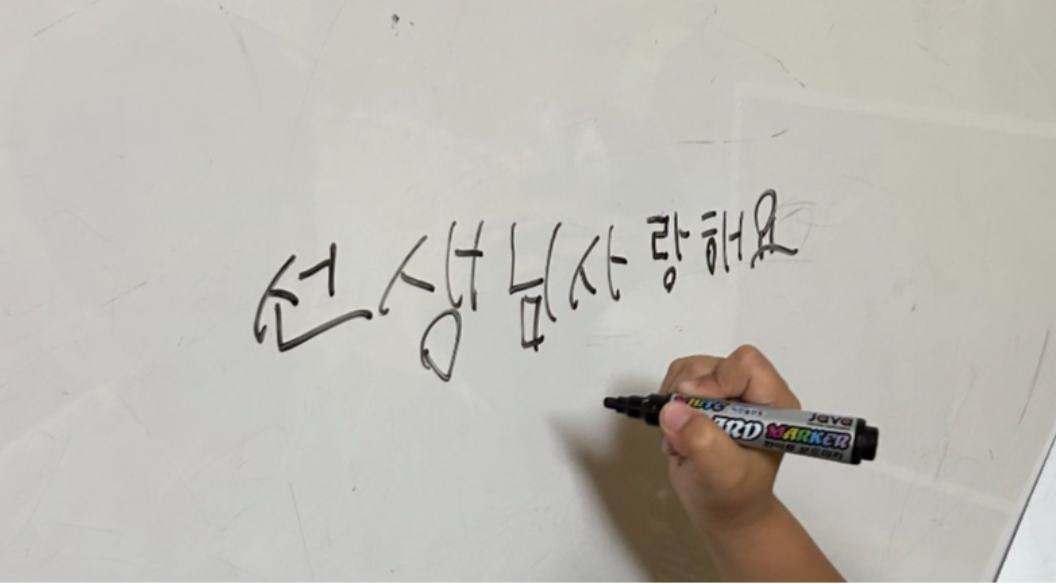 선생님사랑해요
Java
BOARD MARKER